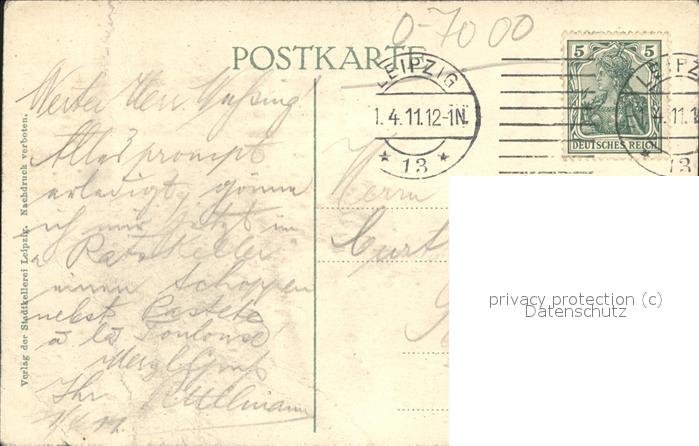 0-7000
POSTKARTE
LEIPZIG
1.4.11.12-1N.
* 13 *
5 5
DEUTSCHES REICH
LEIPZ
4.11.1
13
Verlag der Stadtkellerei Leipzig. Nachdruck verboten.
Werter Herr
Alles prompt
erledigt, gönne
ich mir jetzt im
"Ratskeller"
einen Schoppen
nebst Pastete
à la Toulouse
Herzl. Gruß
Ihr Ullmann
1/4 11.
Herrn
Curt
privacy protection (c)
Datenschutz